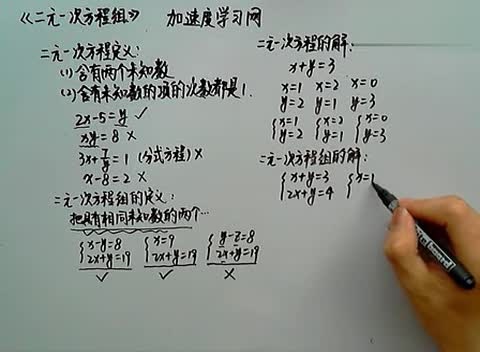 《二元一次方程组》 加速度学习网
二元一次方程定义:
(1)含有两个未知数
(2)含有未知数的项的次数都是1.
2x-5=y ✓
xy=8 ×
3x+7/y=1 (分式方程) ×
x-8=2 ×
二元一次方程组的定义:
把具有相同未知数的两个…
{x-y=8 {x=9 {y-z=8
2x+y=19 2x+y=19 2x+y=19
✓ ✓ ×
二元一次方程的解:
x+y=3
x=1 x=2 x=0
y=2 y=1 y=3
{x=1 {x=2 {x=0
y=2 y=1 y=3
二元一次方程组的解:
{x+y=3 {x=1
2x+y=4